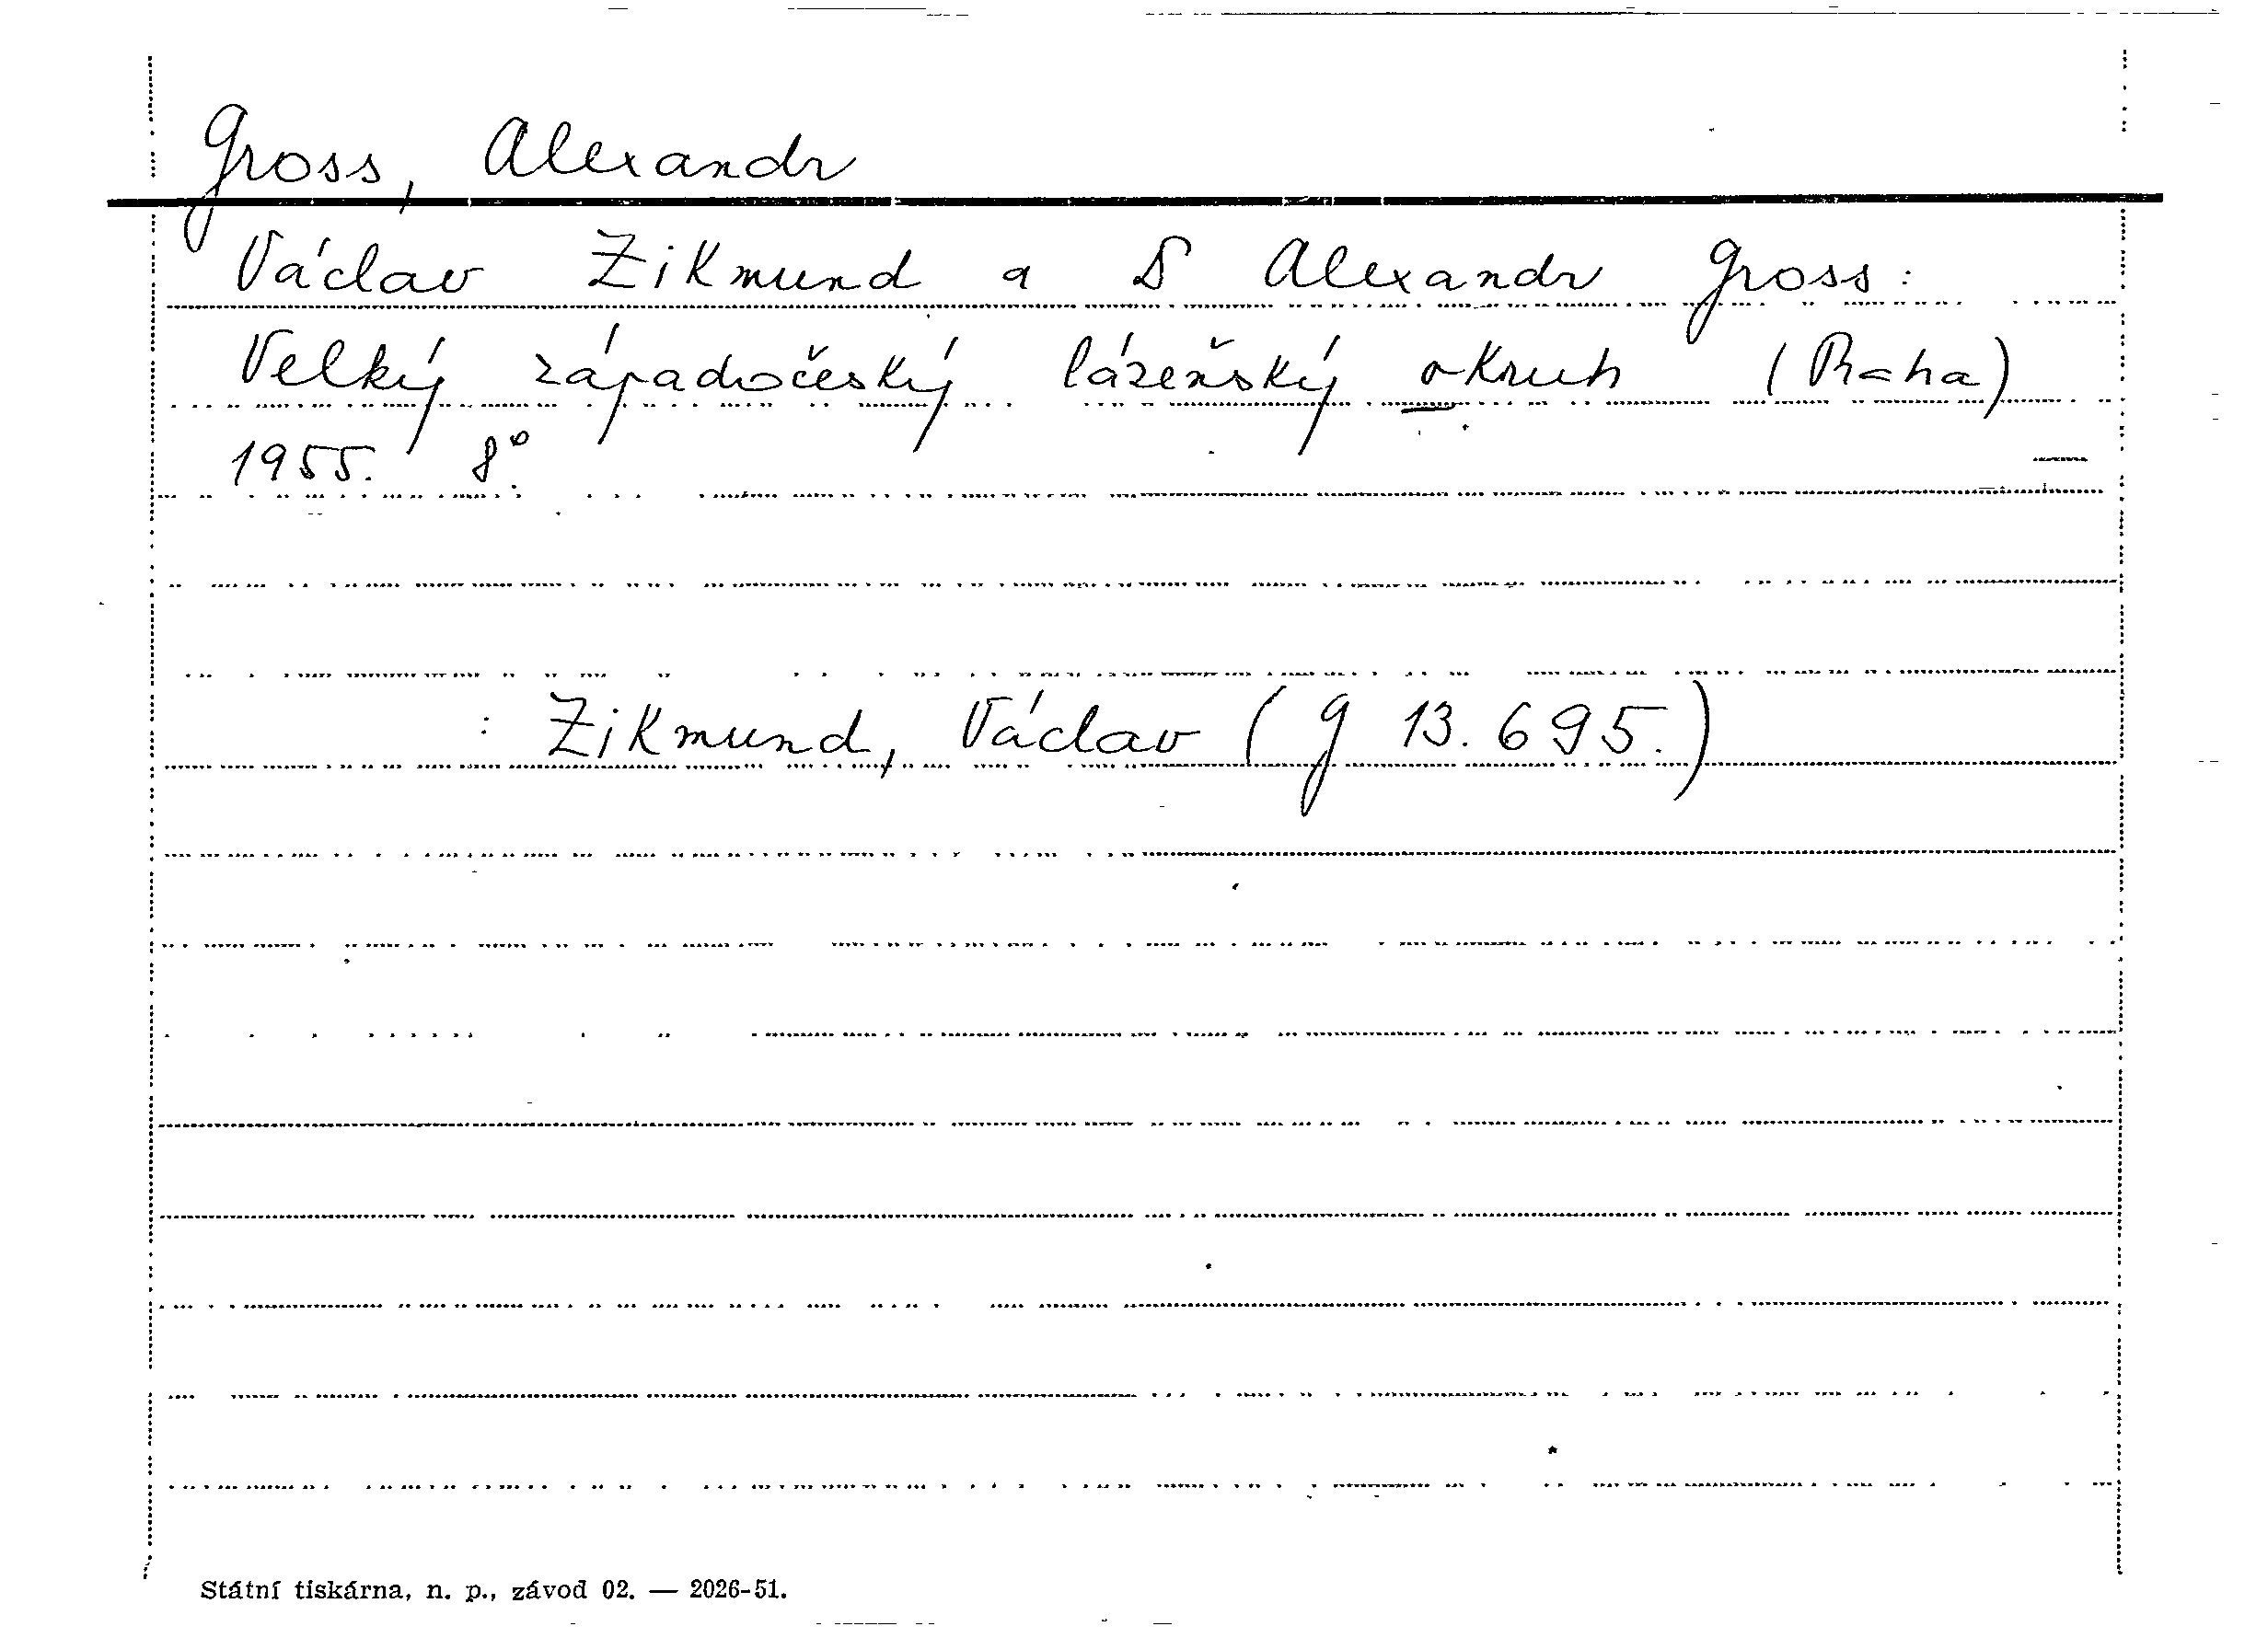 Gross, Alexandr
Václav Zikmund a S Alexandr Gross:
Velký západočeský lázeňský okruh (Praha)
1955. 8°.
: Zikmund, Václav (g 13.695.)
Státní tiskárna, n. p., závod 02. — 2026-51.